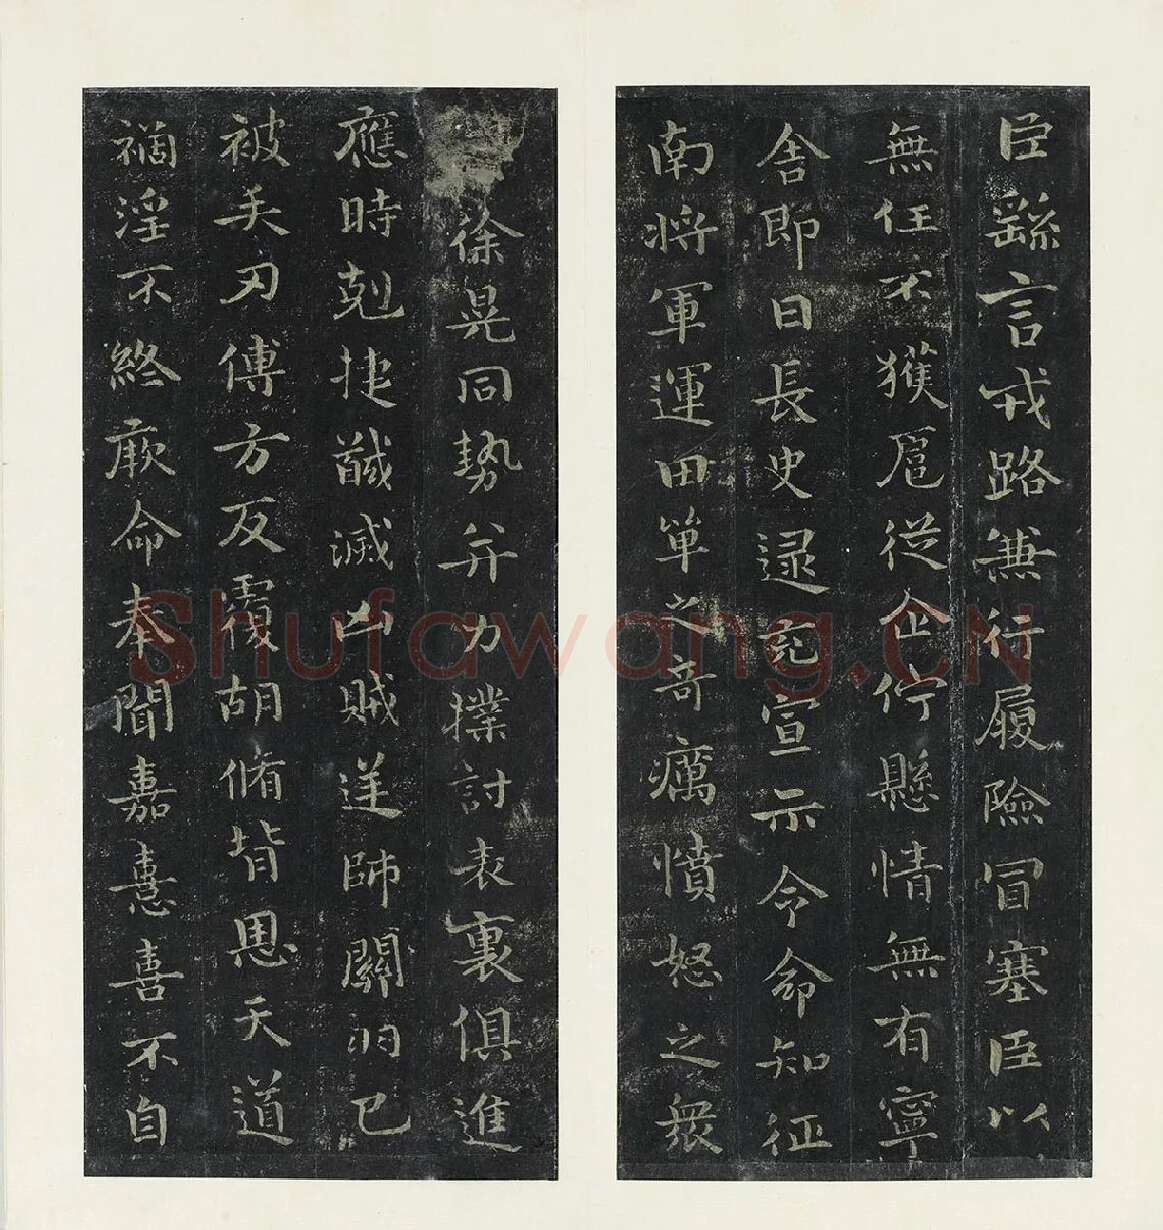 臣繇言戎路兼行履險冒寒臣以
無任不獲扈從企佇懸情無有寧
舍即日長史逯充宣示令命知征
南將軍運田單之奇厲憤怒之眾
徐晃同勢并力撲討表裏俱進
應時剋捷馘滅凶賊逆帥關羽已
被矢刃傅方反覆胡脩背恩天道
禍淫不終厥命奉聞嘉憙喜不自
Shufawang.CN